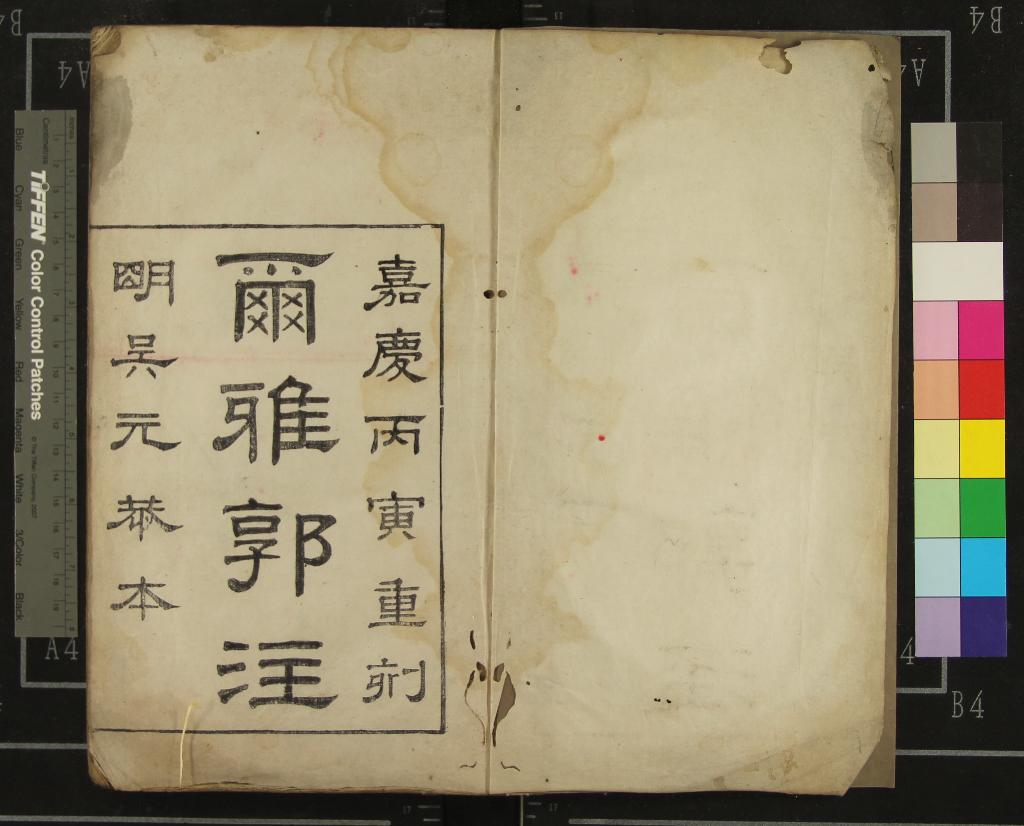 嘉慶丙寅重刻
爾雅郭注
明吳元恭本
TIFFEN Color Control Patches © The Tiffen Company, 2007
Centimetres
Inches
Blue Cyan Green Yellow Red Magenta White 3/Color Black
B4
A4
A4
B4
A4
4
B4